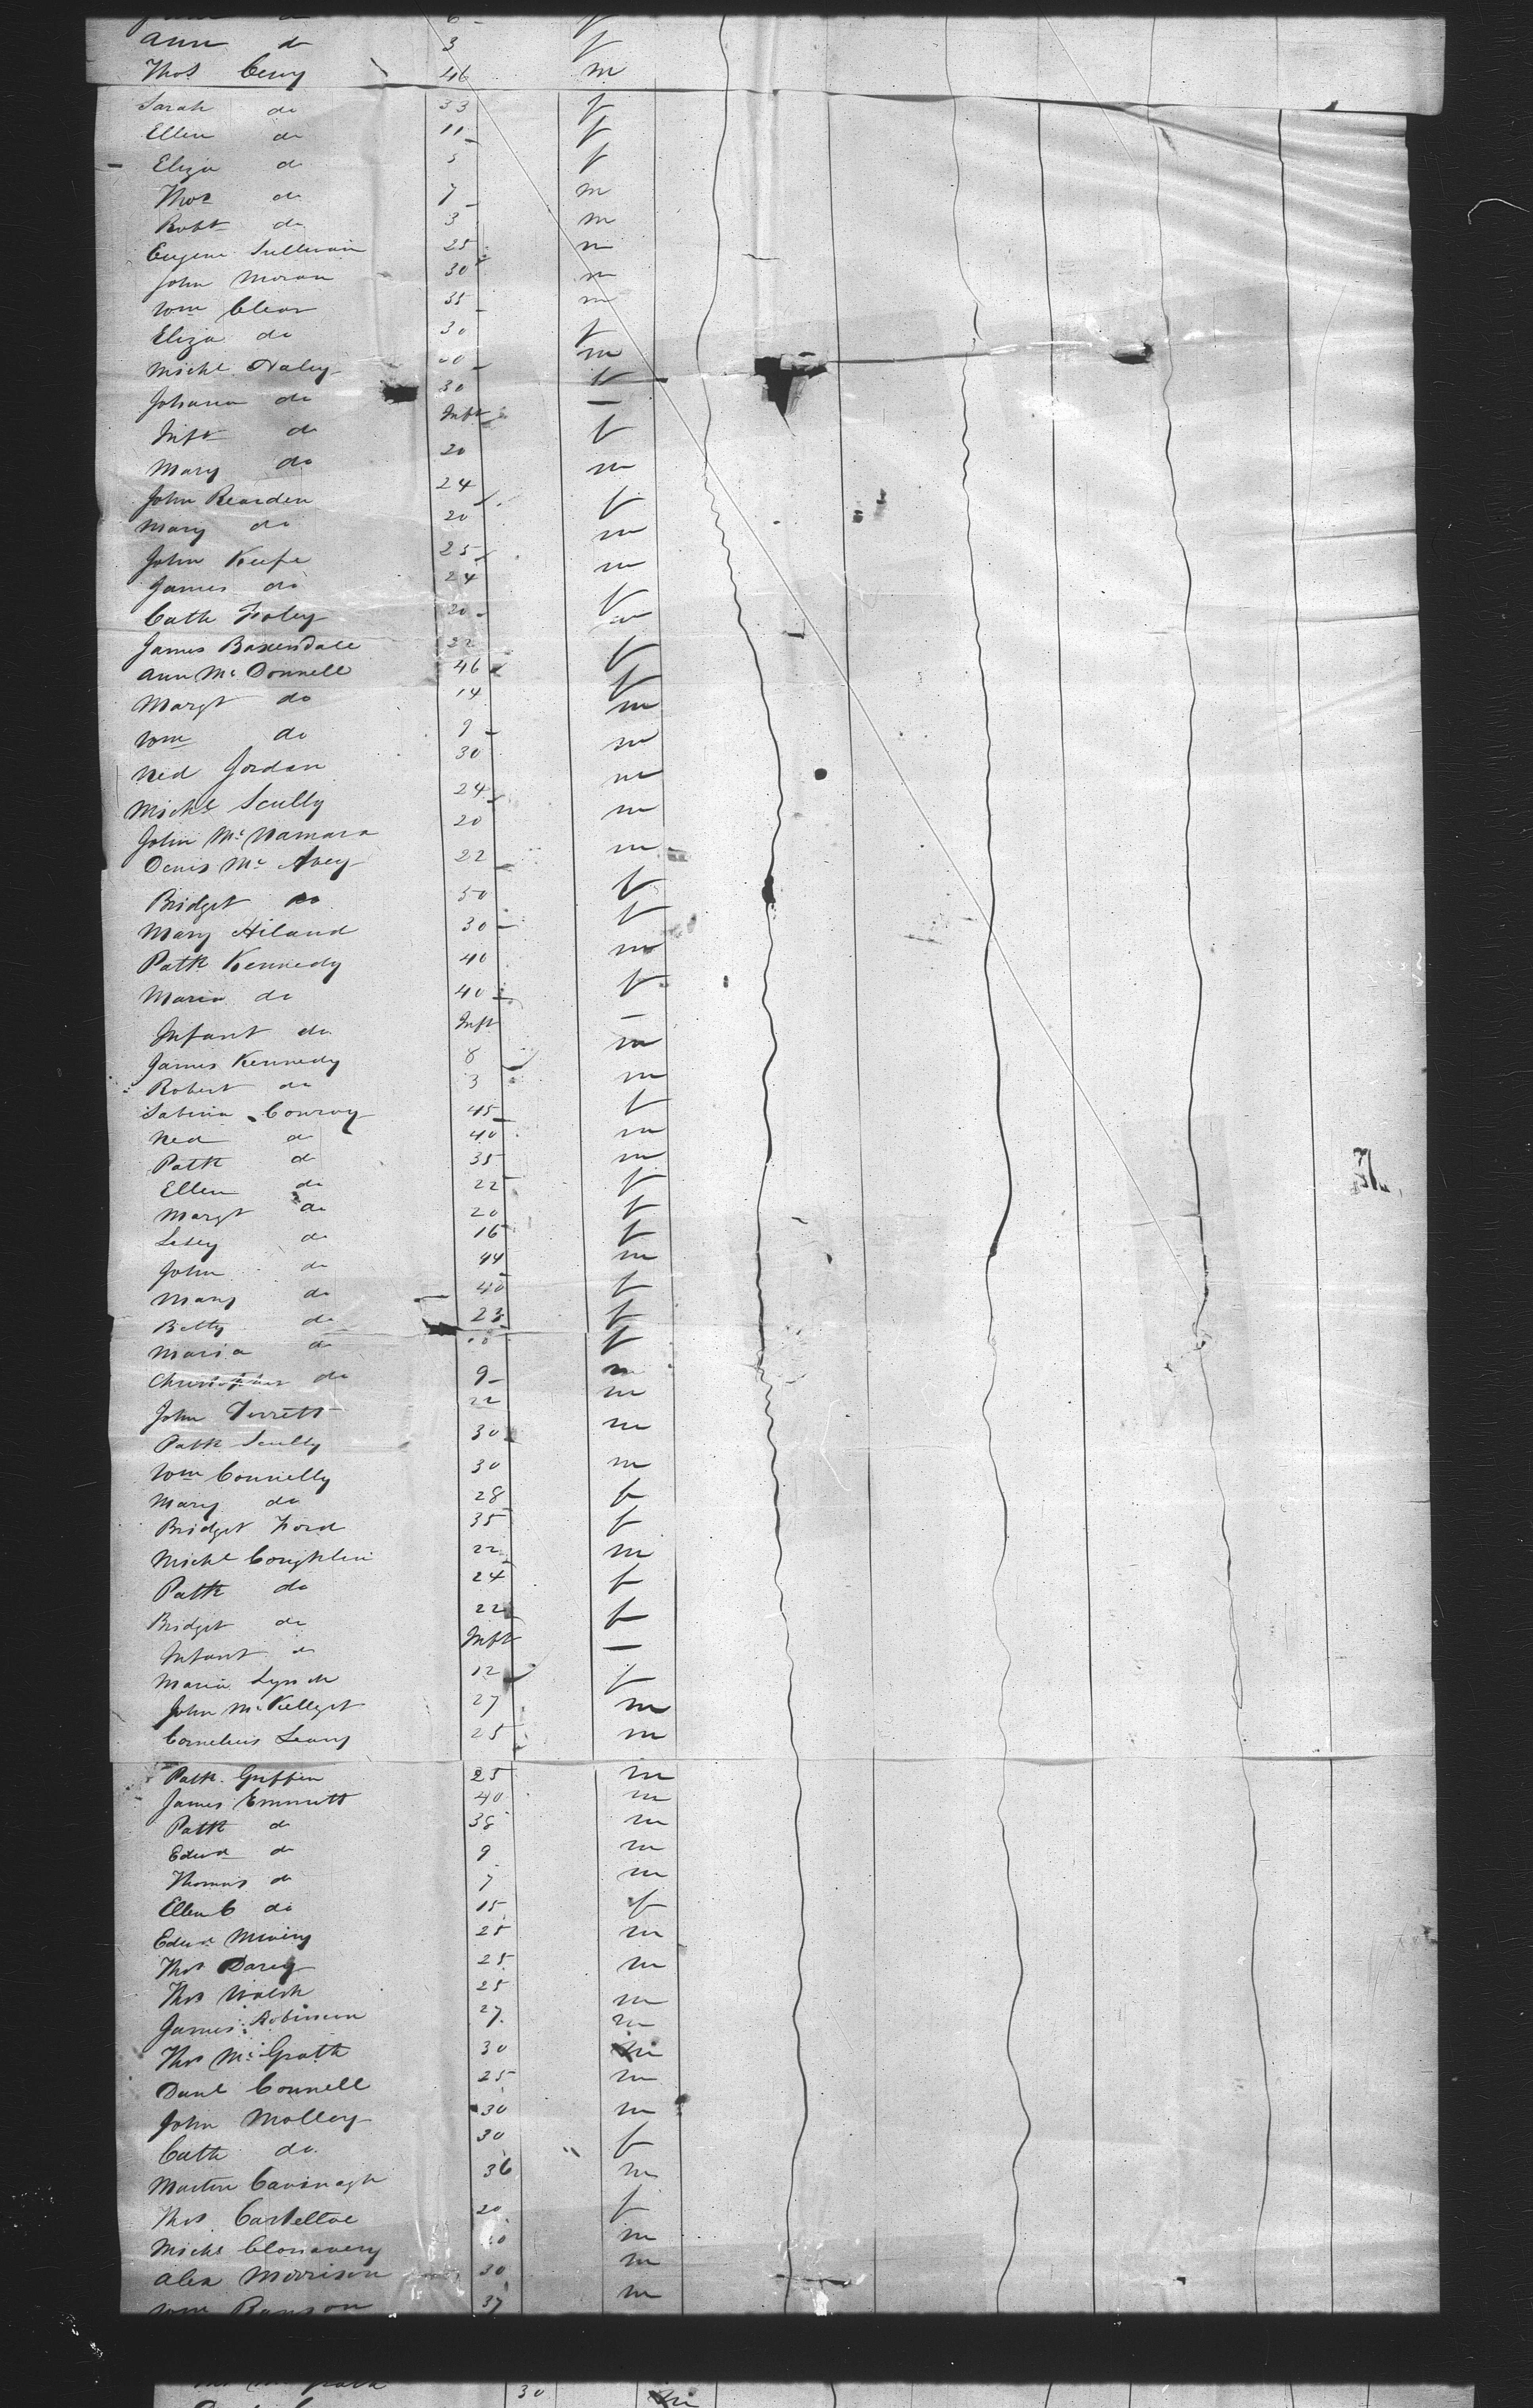 Ann do 3 f
Thos 46 m
Sarah do 33 f
Ellen do 11 f
Eliza do 5 f
Thos do 7 m
Robt do 3 m
Eugene Sullivan 25 m
John Moran 30 m
Wm Clear 35 m
Eliza do 30 f
Michl Daley m
Johana do 30 f
Inft do Inft —
Mary do 20 f
John Rearden 24 m
Mary do 20 f
John Keefe 25 m
James do 24 m
Cath Foley 20 f
James Baxendale 22 m
Ann Mc Donnell 46 f
Margt do 14 f
Wm do 9 m
Ned Jordan 30 m
Michl Scully 24 m
John Mc Namara 20 m
Denis Mc Avey 22 m
Bridget do 50 f
Mary Hiland 30 f
Patk Kennedy 40 m
Maria do 40 f
Infant do Inft —
James Kennedy 8 m
Robert do 3 m
Sabina Conroy 45 f
Ned do 40 m
Patk do 35 m
Ellen do 22 f
Margt do 20 f
do 16 f
John do 44 m
Mary do 40 f
Betty do 23 f
Maria do f
Christopher do 9 m
John 22 m
Patk Scully 30 m
Wm Connelly 30 m
Mary do 28 f
Bridget Ford 35 f
Michl Coughlin 22 m
Patk do 24 f
Bridget do 22 f
Infant do Inft —
Maria Lynch 12 f
John 27 m
Cornelius Leary 25 m
Patk Griffin 25 m
James Emmett 40 m
Patk do 38 m
Edwd do 9 m
Thomas do 7 m
Ellen C do 15 f
Edwd 25 m
Thos Darcy 25 m
Thos Walsh 25 m
James Robinson 27 m
Thos Mc Grath 30 m
Danl Connell 25 m
John Molloy 30 m
Cath do 30 f
Martin Cavanagh 36 m
Thos 20 f
Michl m
Alex Morrison 30 m
Wm 37 m
30 m